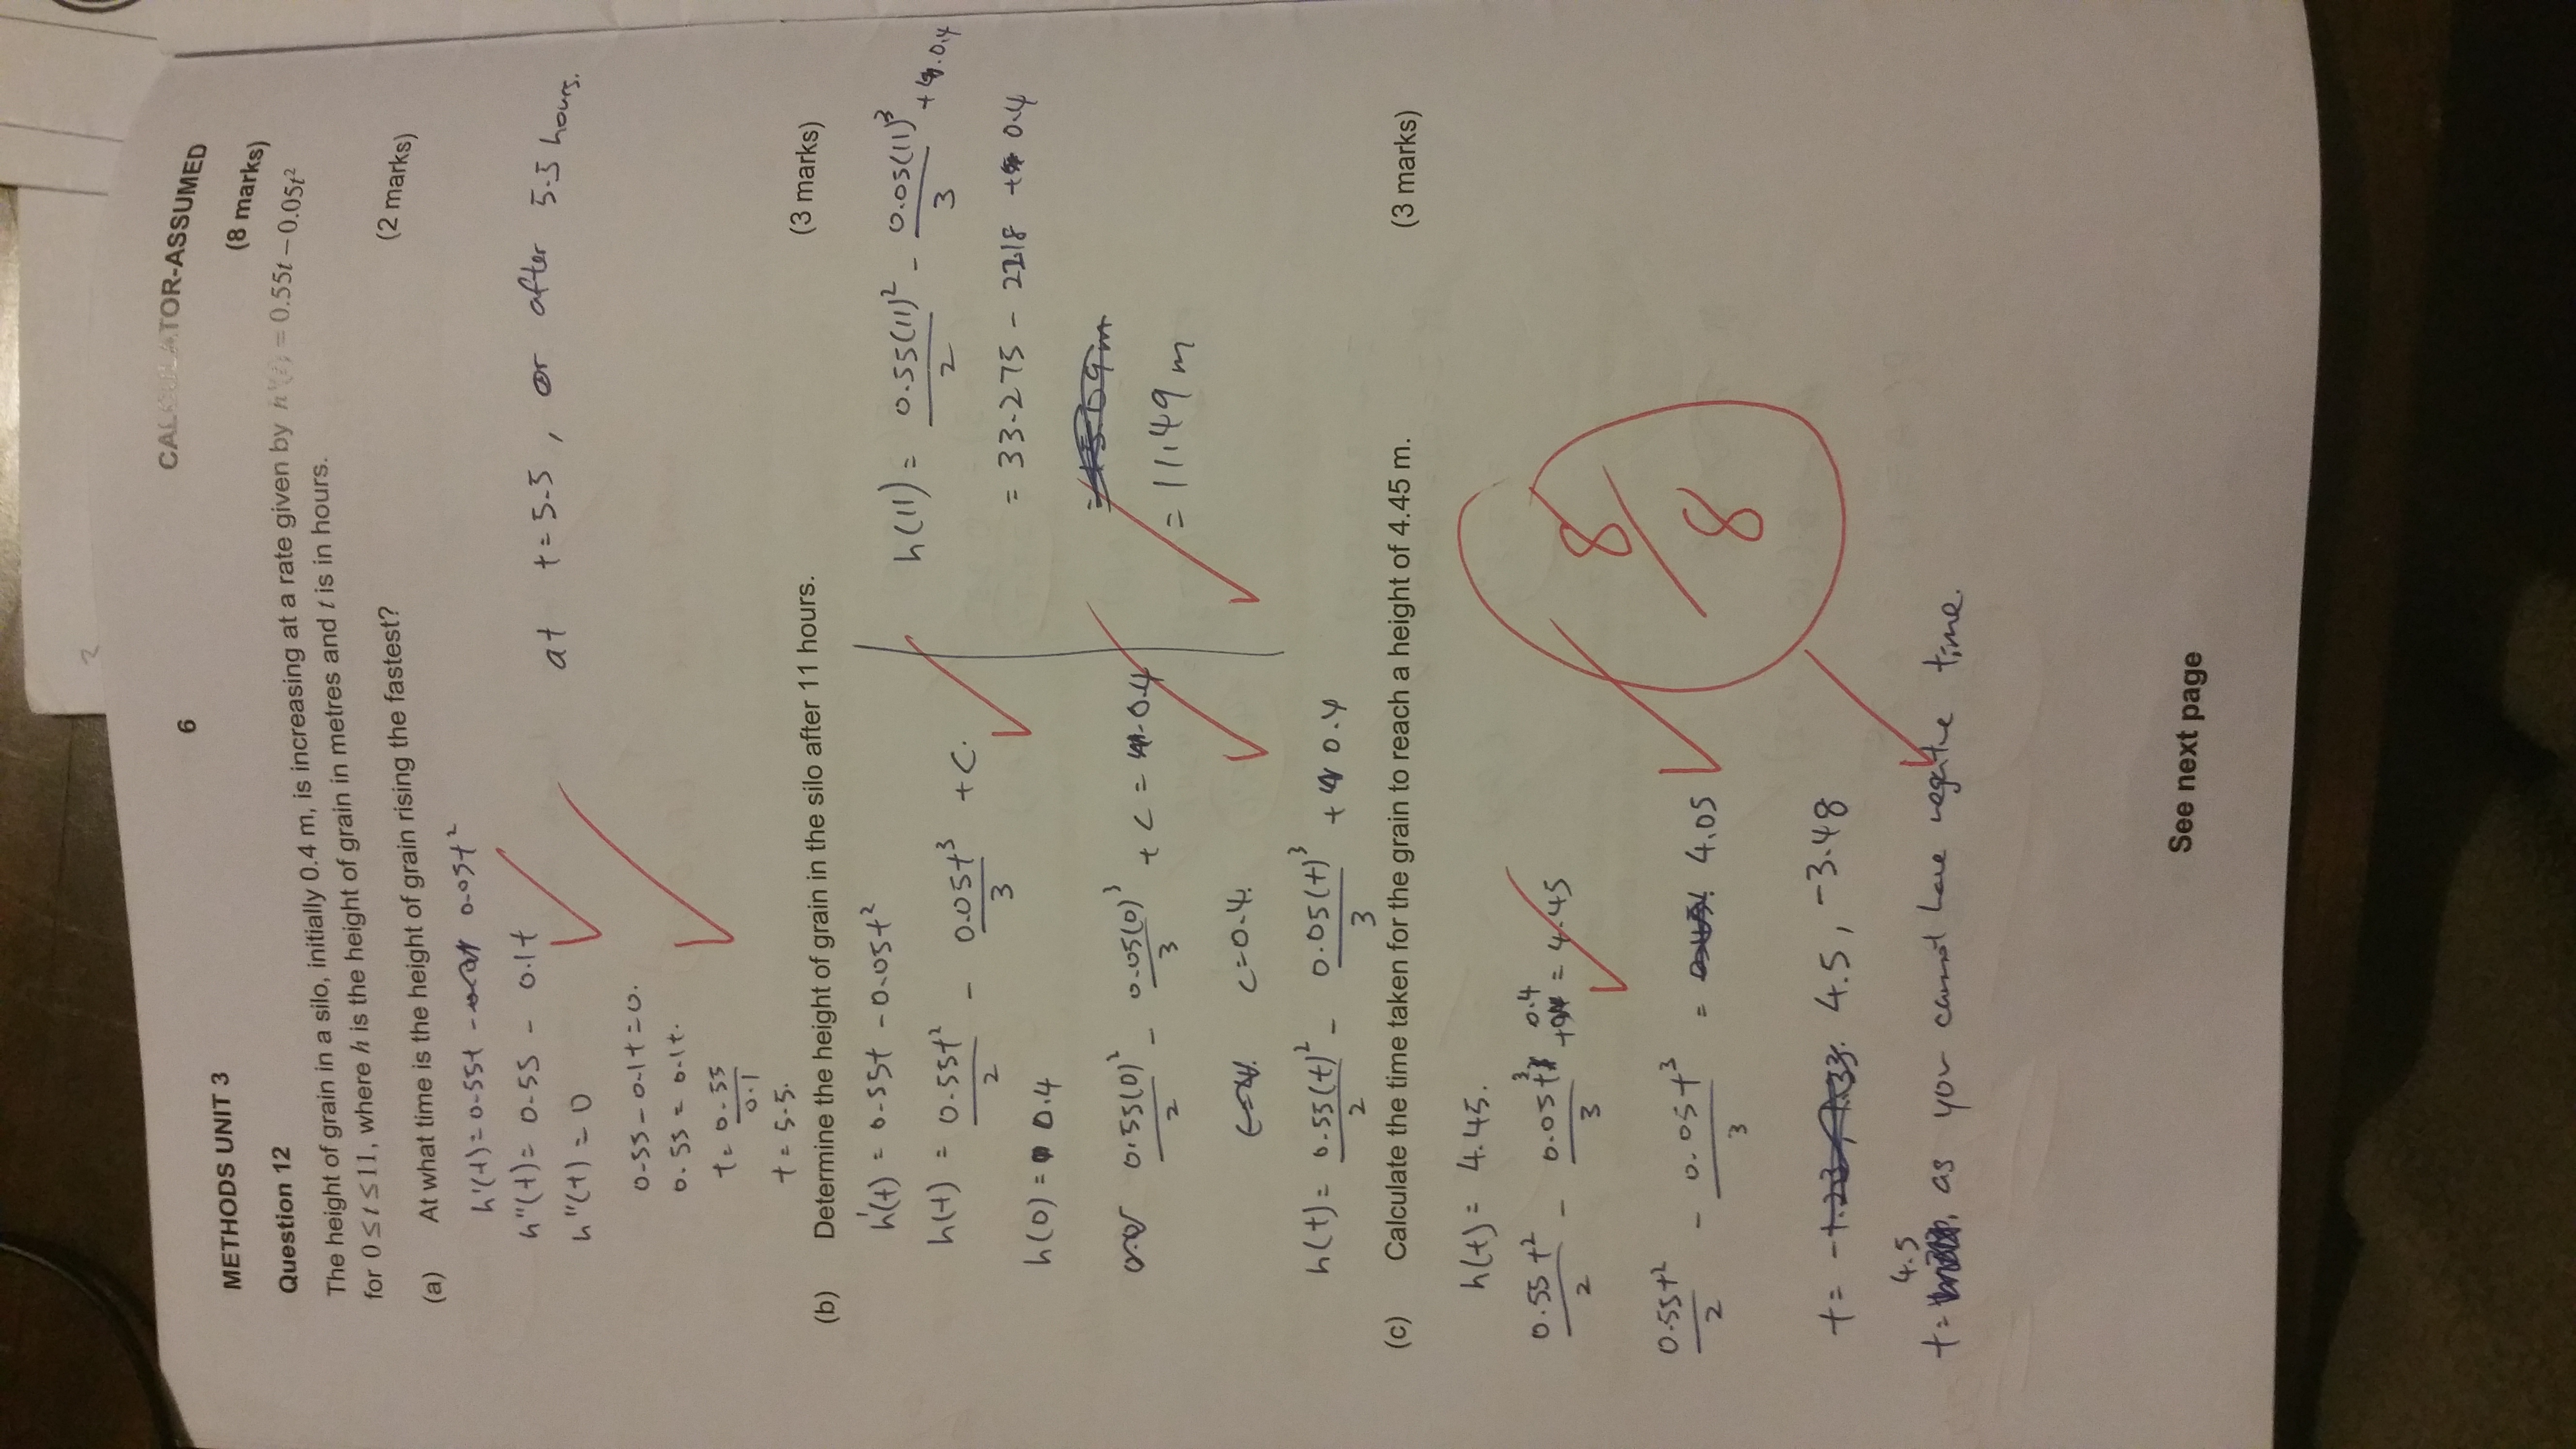 METHODS UNIT 3 6 CALCULATOR-ASSUMED
Question 12 (8 marks)
The height of grain in a silo, initially 0.4 m, is increasing at a rate given by h'(t) = 0.55t − 0.05t²
for 0 ≤ t ≤ 11, where h is the height of grain in metres and t is in hours.
(a) At what time is the height of grain rising the fastest? (2 marks)
h'(t) = 0.55t - 0.05t²
h''(t) = 0.55 - 0.1t
h''(t) = 0
0.55 - 0.1t = 0.
0.55 = 0.1t.
t = 0.55/0.1
t = 5.5.
at t = 5.5, or after 5.5 hours.
(b) Determine the height of grain in the silo after 11 hours. (3 marks)
h'(t) = 0.55t - 0.05t²
h(t) = 0.55t²/2 - 0.05t³/3 + C.
h(0) = 0.4
0.55(0)²/2 - 0.05(0)³/3 + C = 0.4
C = 0.4.
h(t) = 0.55(t)²/2 - 0.05(t)³/3 + 0.4
h(11) = 0.55(11)²/2 - 0.05(11)³/3 + 0.4
= 33.275 - 22.18 + 0.4
= 11.49 m
(c) Calculate the time taken for the grain to reach a height of 4.45 m. (3 marks)
h(t) = 4.45.
0.55t²/2 - 0.05t³/3 + 0.4 = 4.45
0.55t²/2 - 0.05t³/3 = 4.05
t = 4.5, -3.48
t = 4.5, as you cannot have negative time.
8/8
See next page